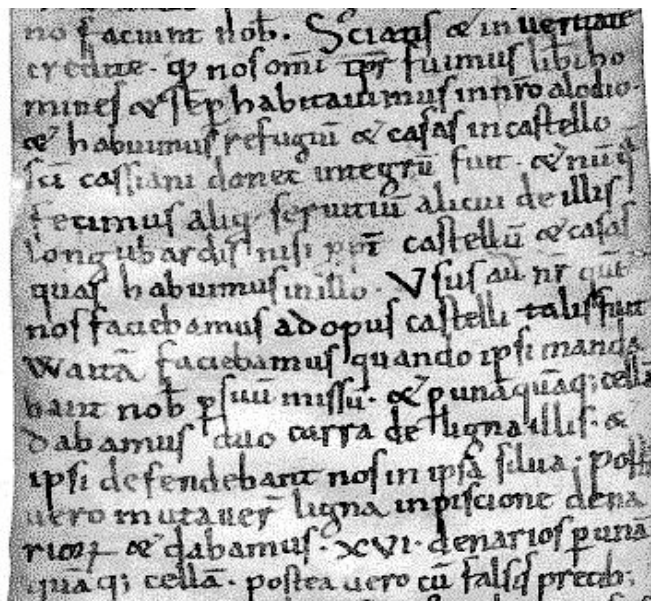 no faciunt nob̄. Sciatis & in ueritate
credite. qđ nos om̄i tp̄r fuimus lib̄i ho
mines & sēp habitauimus in nr̄o alodio.
& habuimus refugiū & casas in castello
sc̄i cassiani donec integrū fuit. & nūq̄
fecimus aliq̄ seruitiū alicui de illis
longubardis nisi pp̄t castellū & casas
quas habuimus in illo. Vsus aū nr̄ quē
nos faciebamus ad opus castelli talis fuit
Waitā faciebamus quando ipsi manda
bant nob̄ p suū missū. & p unāquāq; cellā
dabamus duo carra de ligna illis. &
ipsi defendebant nos in ipsā silua; post
uero mutauer̄ ligna in piscione dena
rioꝝ & dabamus. XVI. denarios p unā
quāq; cellā. postea uero cū falsis precib;